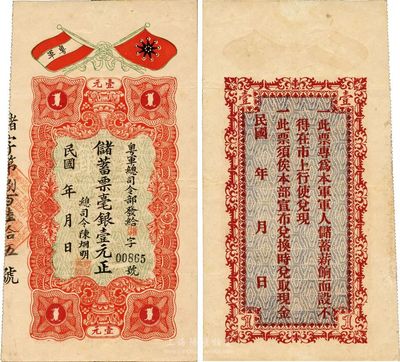 粤軍
壹元
1 1
粵軍總司令部發給 字
00865 號
儲蓄票毫銀壹元正
總司令陳炯明
民國 年 月 日
1 1
壹元
儲字第捌百陸拾五號
壹 壹
此票專爲本軍軍人儲蓄薪餉而設不
得在市上行使兌現
此票須俟本部宣布兌換時兌取現金
民國 年 月 日
1 1